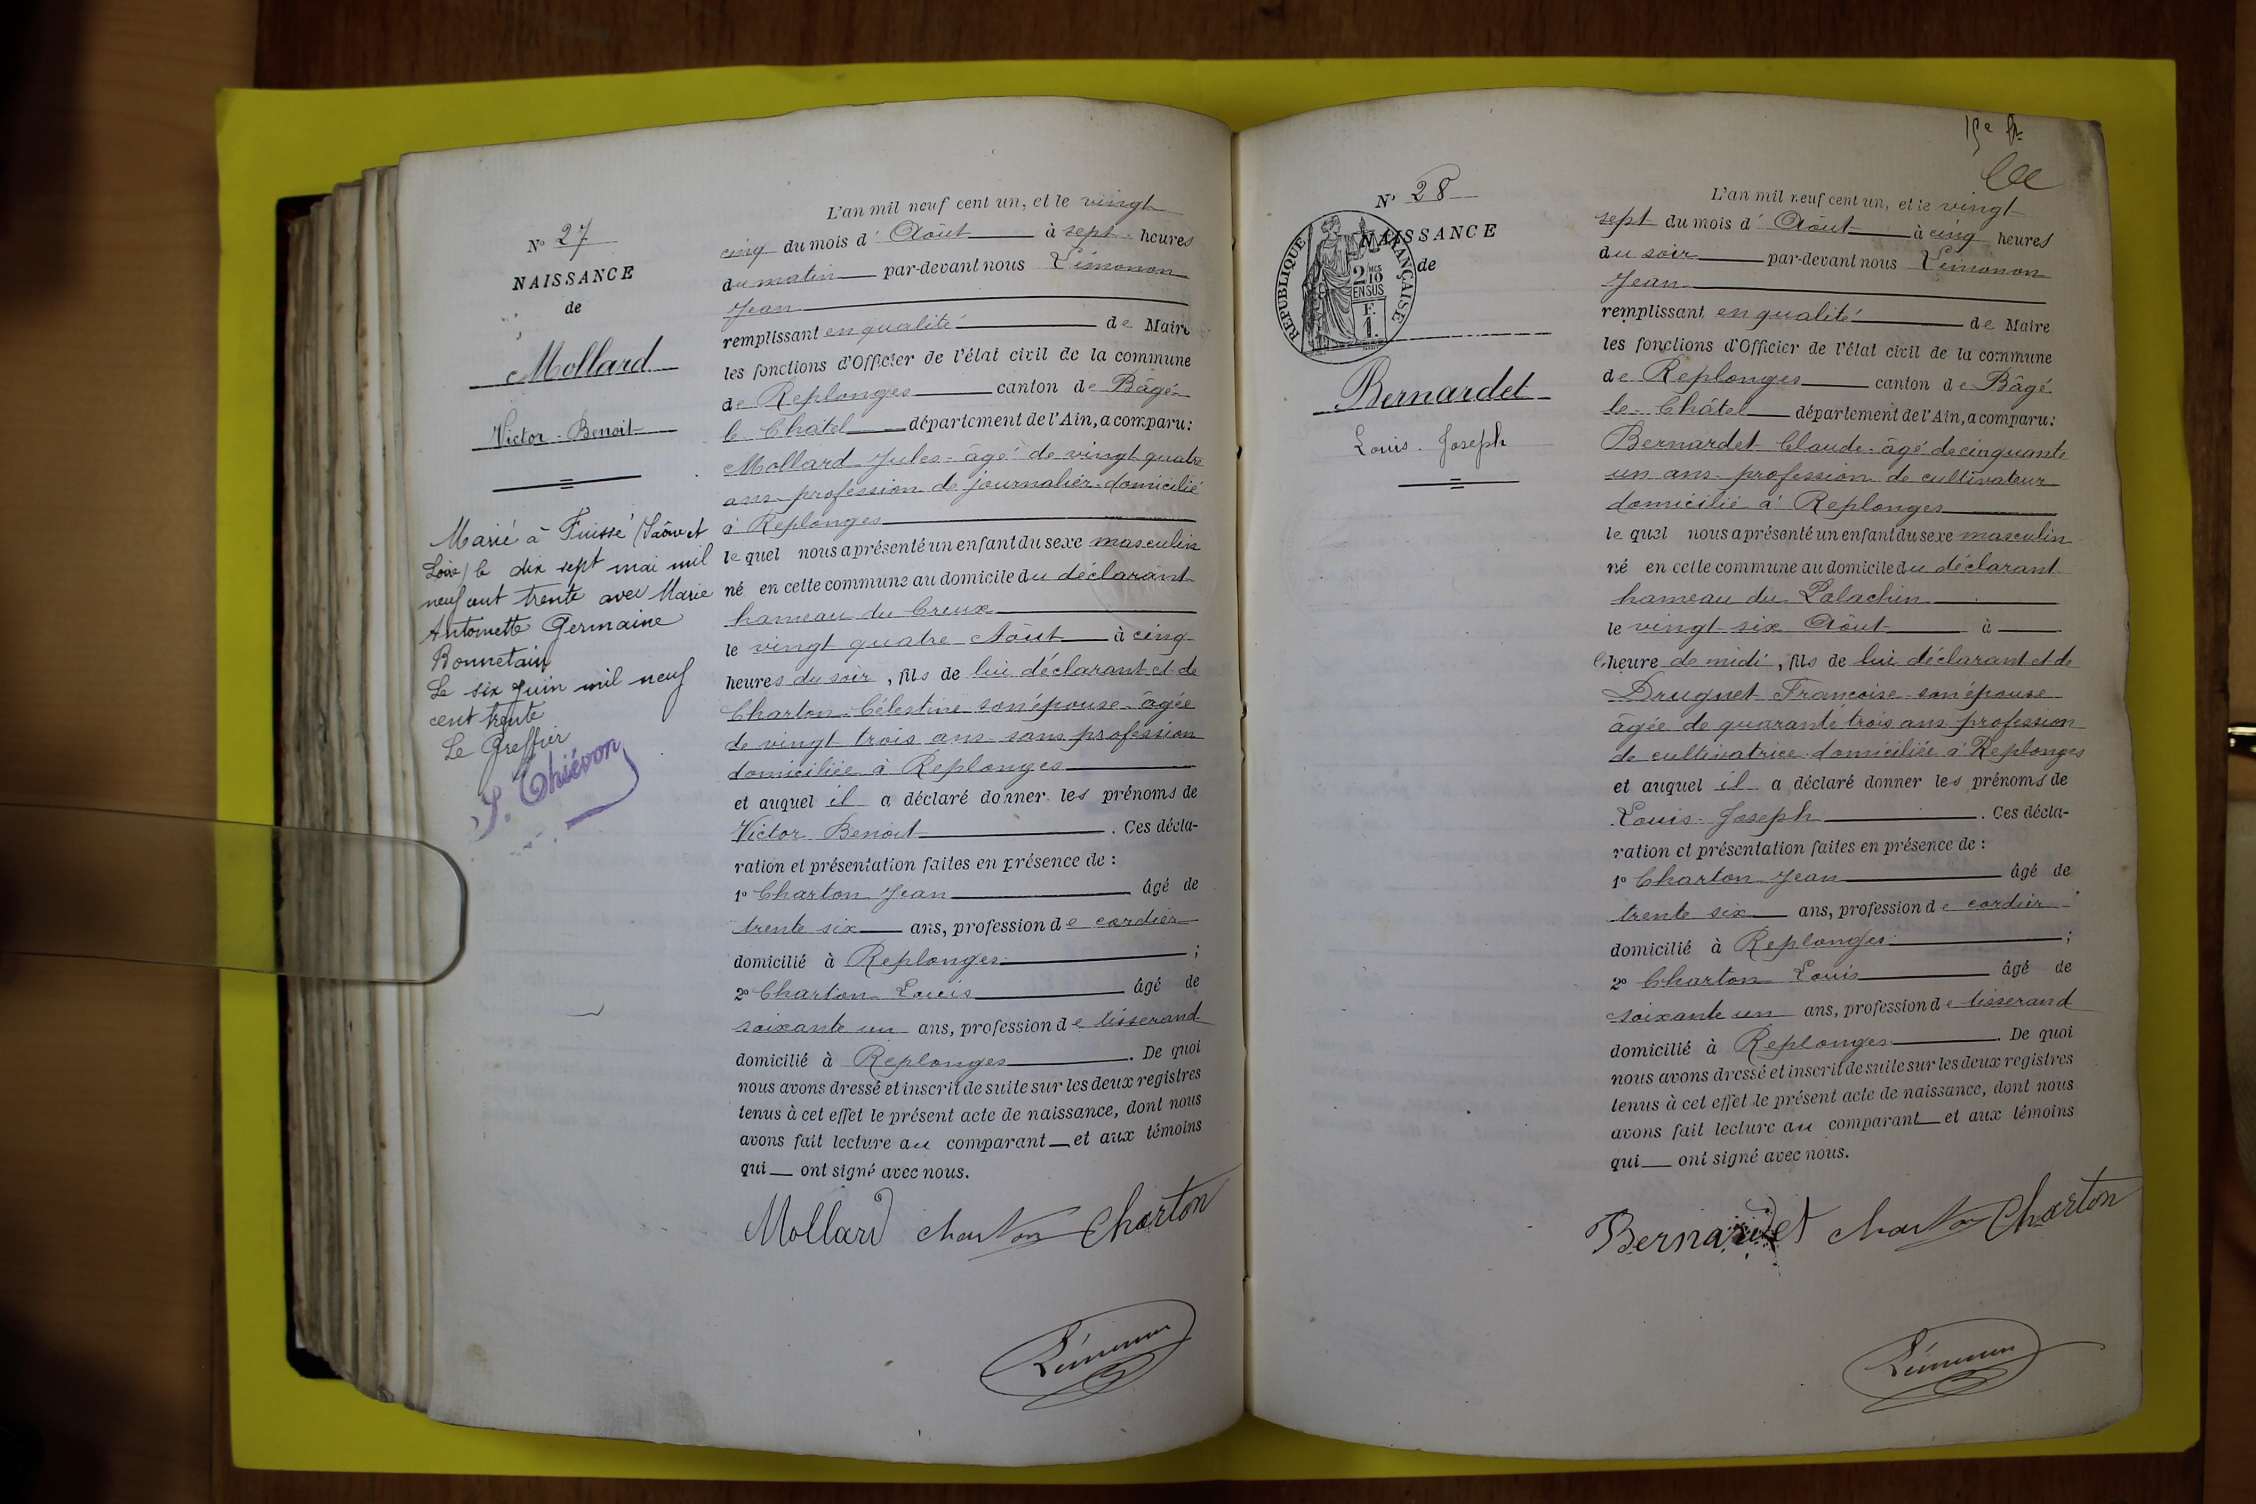 N° 27
NAISSANCE
de
Mollard
Victor - Benoit
Marié à Fuissé (Saône et
Loire) le dix sept mai mil
neuf cent trente avec Marie
Antoinette Germaine
Bonnetain
Le six juin mil neuf
cent trente
Le Greffier
S. Thiévon
L'an mil neuf cent un, et le vingt
cinq du mois d' Aôut à sept heures
du matin par-devant nous Lémonon
Jean
remplissant en qualité de Maire
les fonctions d'Officier de l'état civil de la commune
de Replonges canton de Bâgé
le Châtel département de l'Ain, a comparu:
Mollard Jules - âgé de vingt quatre
ans - profession de journalier - domicilié
à Replonges
le quel nous a présenté un enfant du sexe masculin
né en cette commune au domicile du déclarant
hameau du Creux
le vingt quatre Aôut à cinq
heures du soir, fils de lui déclarant et de
Charton Célestine son épouse - âgée
de vingt trois ans sans profession
domiciliée à Replonges
et auquel il a déclaré donner les prénoms de
Victor Benoit. Ces décla-
ration et présentation faites en présence de :
1° Charton Jean âgé de
trente six ans, profession de cordier
domicilié à Replonges ;
2° Charton Louis âgé de
soixante un ans, profession de tisserand
domicilié à Replonges. De quoi
nous avons dressé et inscrit de suite sur les deux registres
tenus à cet effet le présent acte de naissance, dont nous
avons fait lecture au comparant et aux témoins
qui ont signé avec nous.
Mollard Charton Charton
Lémonon
15e
N° 28
NAISSANCE
de
RÉPUBLIQUE FRANÇAISE
2/10
EN SUS
F.
1.
Bernardet
Louis - Joseph
L'an mil neuf cent un, et le vingt
sept du mois d' Aôut à cinq heures
du soir par-devant nous Lémonon
Jean
remplissant en qualité de Maire
les fonctions d'Officier de l'état civil de la commune
de Replonges canton de Bâgé
le Châtel département de l'Ain, a comparu:
Bernardet Claude - âgé de cinquante
un ans - profession de cultivateur
domicilié à Replonges
le quel nous a présenté un enfant du sexe masculin
né en cette commune au domicile du déclarant
hameau du Palachin
le vingt six Aôut à
heure de midi, fils de lui déclarant et de
Druguet Françoise son épouse
âgée de quarante trois ans profession
de cultivatrice domiciliée à Replonges
et auquel il a déclaré donner les prénoms de
Louis - Joseph. Ces décla-
ration et présentation faites en présence de :
1° Charton Jean âgé de
trente six ans, profession de cordier
domicilié à Replonges ;
2° Charton Louis âgé de
soixante un ans, profession de tisserand
domicilié à Replonges. De quoi
nous avons dressé et inscrit de suite sur les deux registres
tenus à cet effet le présent acte de naissance, dont nous
avons fait lecture au comparant et aux témoins
qui ont signé avec nous.
Bernardet Charton Charton
Lémonon